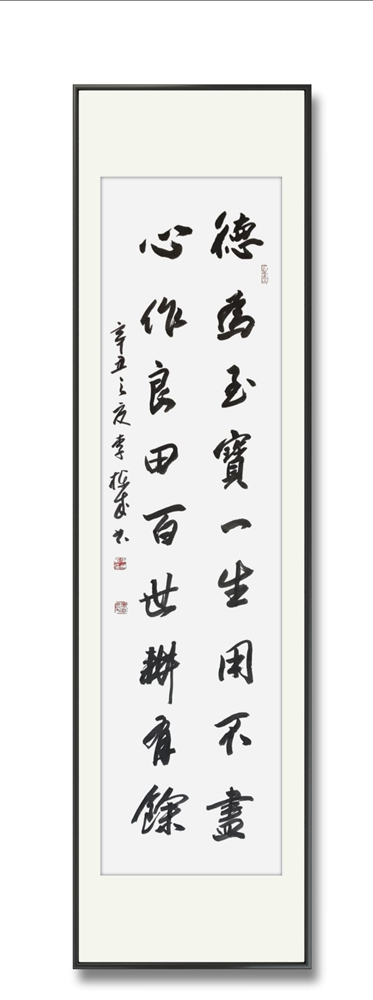 德為至寶一生用不盡
心作良田百世耕有餘
辛丑之夏李 成書